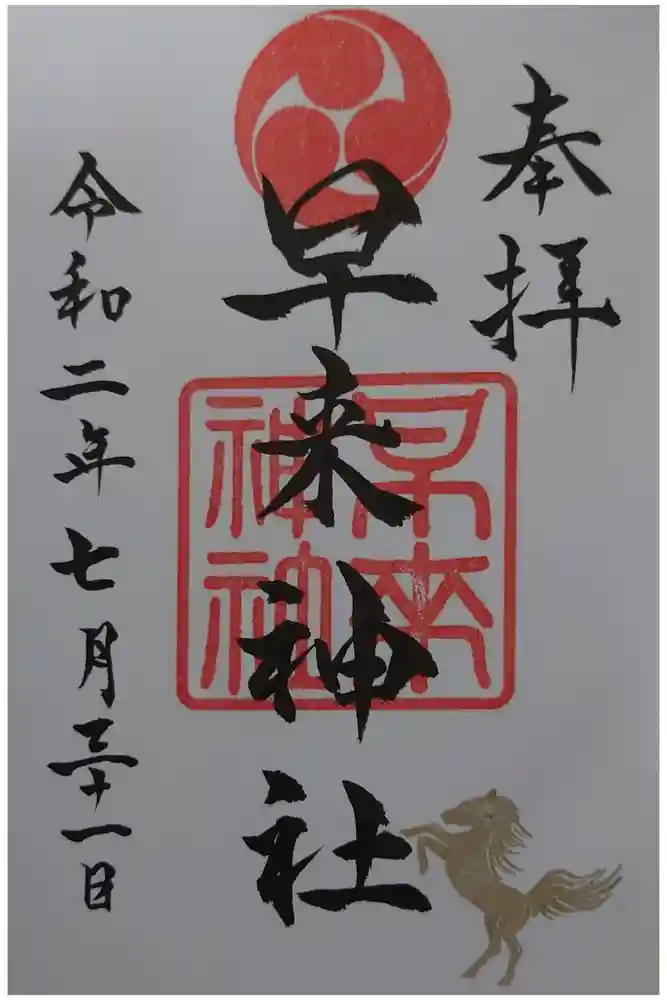 奉拝
早来神社
早来神社
令和二年七月三十一日